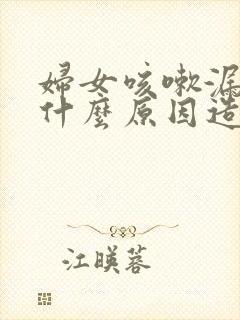 婦女咳嗽漏
什麼原因造
江暎蓉